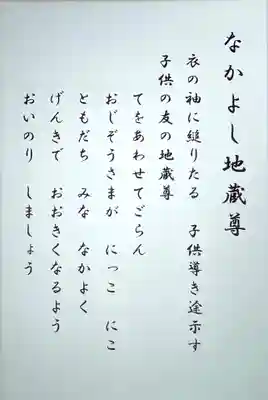 なかよし地蔵尊
衣の袖に縋りたる　子供導き途示す
子供の友の地蔵尊
てをあわせてごらん
おじぞうさまが　にっこ　にこ
ともだち　みな　なかよく
げんきで　おおきくなるよう
おいのり　しましょう